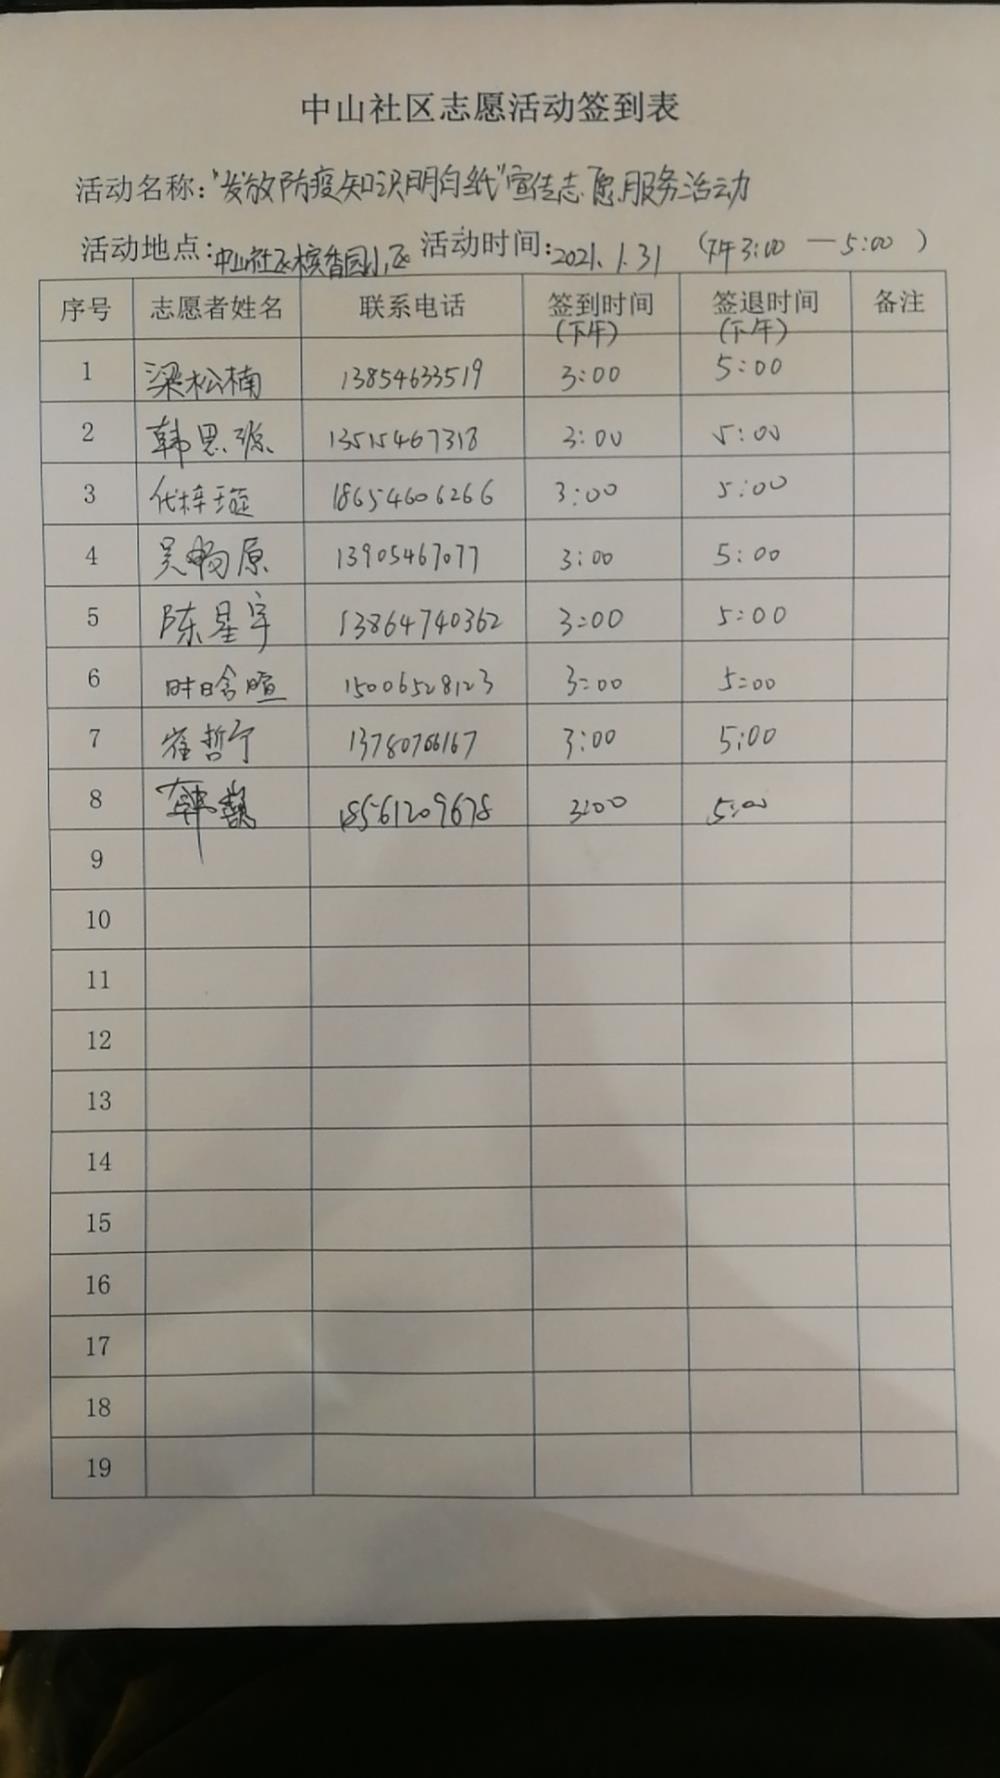 中山社区志愿活动签到表
活动名称:“发放防疫知识明白纸”宣传志愿服务活动
活动地点:中山社区槟香园小区 活动时间:2021.1.31 (下午3:00 — 5:00 )
序号 志愿者姓名 联系电话 签到时间(下午) 签退时间(下午) 备注
1 梁松楠 13854633519 3:00 5:00
2 韩思源 13515467318 3:00 5:00
3 代梓璇 18654606266 3:00 5:00
4 吴畅原 13905467077 3:00 5:00
5 陈星宇 13864740362 3:00 5:00
6 时晗暄 15006528123 3:00 5:00
7 崔哲宁 13780766167 3:00 5:00
8 韩 18561209678 3:00 5:00
9
10
11
12
13
14
15
16
17
18
19